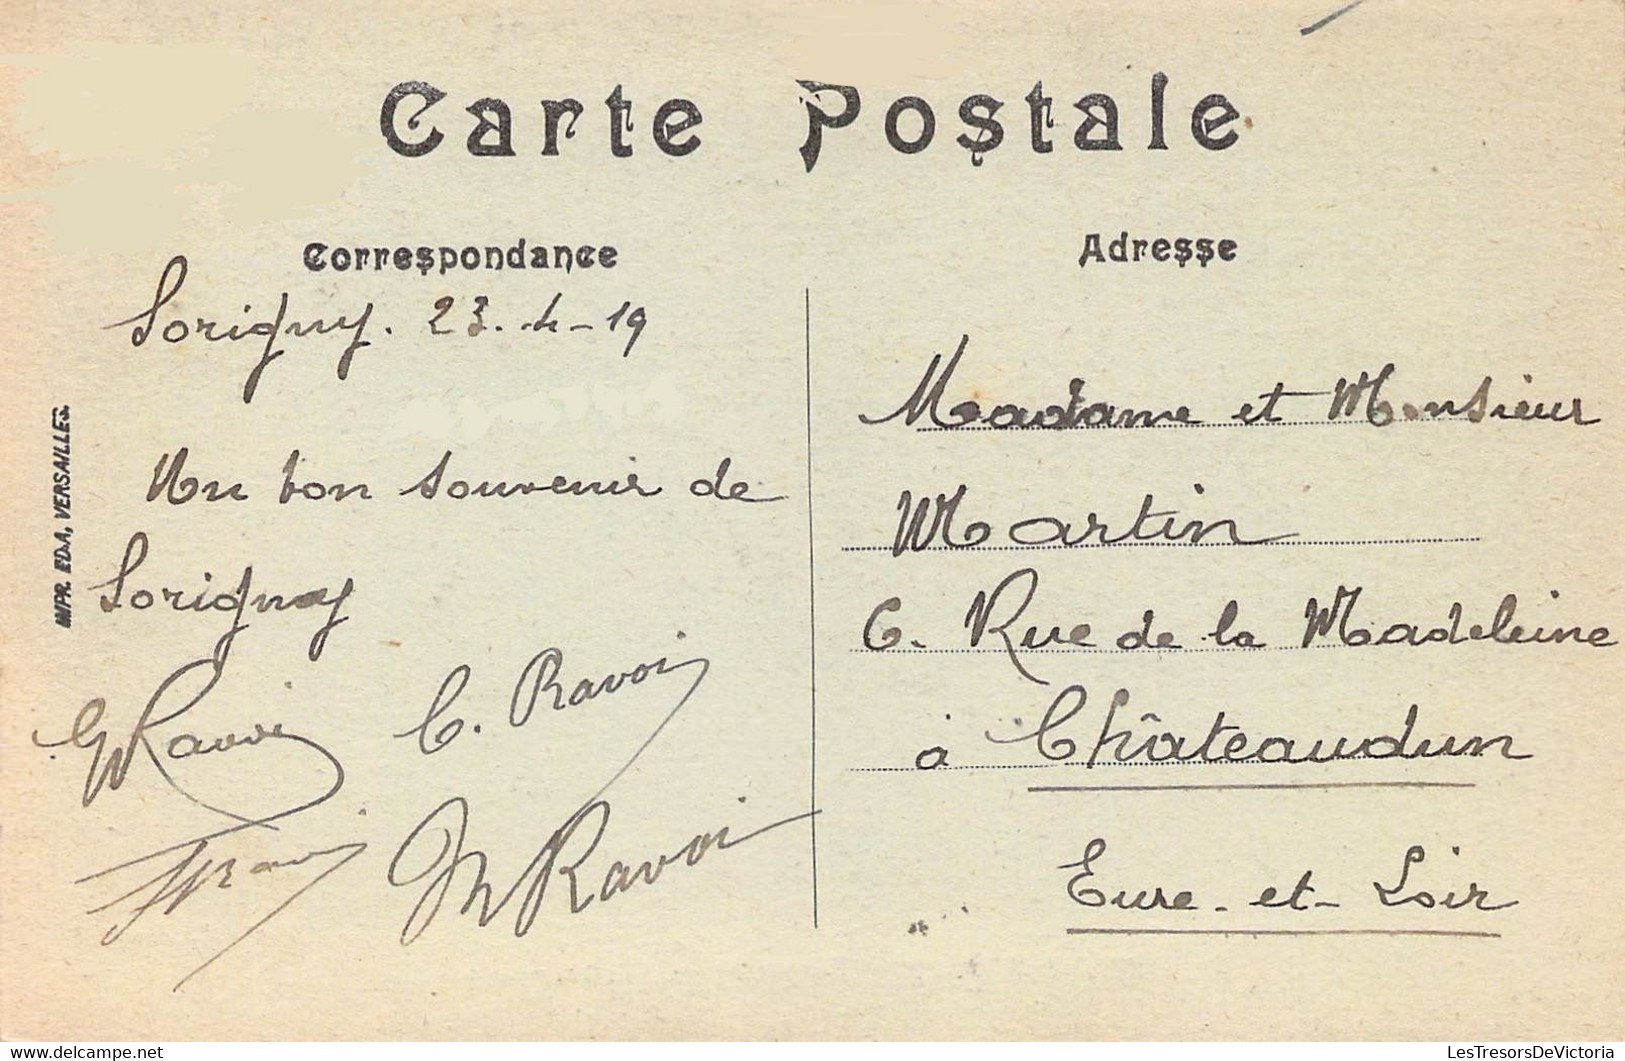 Carte Postale
Correspondance
Sorigny. 23-4-19
Un bon souvenir de
Sorigny
G Ravoi
C. Ravoi
Ravoi
M Ravoi
IMP. EDIA, VERSAILLES.
Adresse
Madame et Monsieur
Martin
6. Rue de la Madeleine
à Châteaudun
Eure-et-Loir
LesTresorsDeVictoria